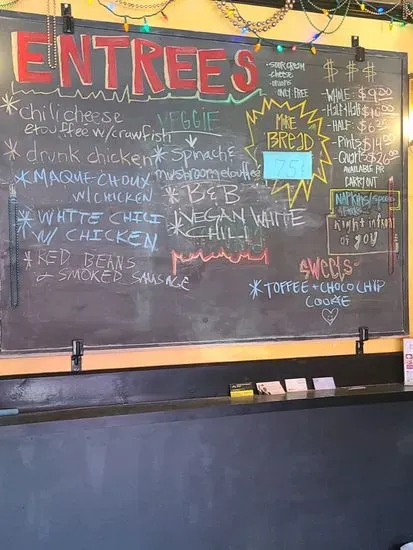 ENTREES
*chili cheese
etouffee w/crawfish
*drunk chicken
*MAQUE CHOUX
W/ CHICKEN
*WHITE CHILI
W/ CHICKEN
*RED BEANS
& SMOKED SAUSAGE
VEGGIE
*SPINACH &
mushroom etouffee
*B&B
*VEGAN WHITE
CHILI
• SOUR CREAM
• cheese
• onions
ONLY, FREE
MORE
BREAD
75¢
$ $ $
- WHOLE:
- Half-N-Half:
- HALF:
- Pints:
- Quarts:
AVAILABLE FOR
CARRY OUT
NAPKINS/Spoons
Forks
Right infront
of you
SWEETS
*TOFFEE + CHOCO CHIP
COOKIE